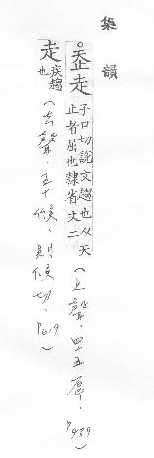 集韻
走
子口切說文趨也从夭
止者屈也隸省文二
(上聲.四五厚.
走
疾趨
也
(去聲.五十候.則候切.P619)